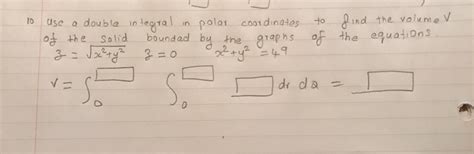 10 Use a double integral in polar coordinates to find the volume V
of the solid bounded by the graphs of the equations.
z = √x²+y² z = 0 x²+y² = 49
V = ∫₀ ∫₀ dr dα =